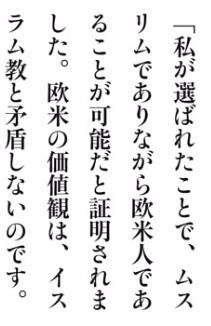 「私が選ばれたことで、ムス
リムでありながら欧米人であ
ることが可能だと証明されま
した。欧米の価値観は、イス
ラム教と矛盾しないのです。